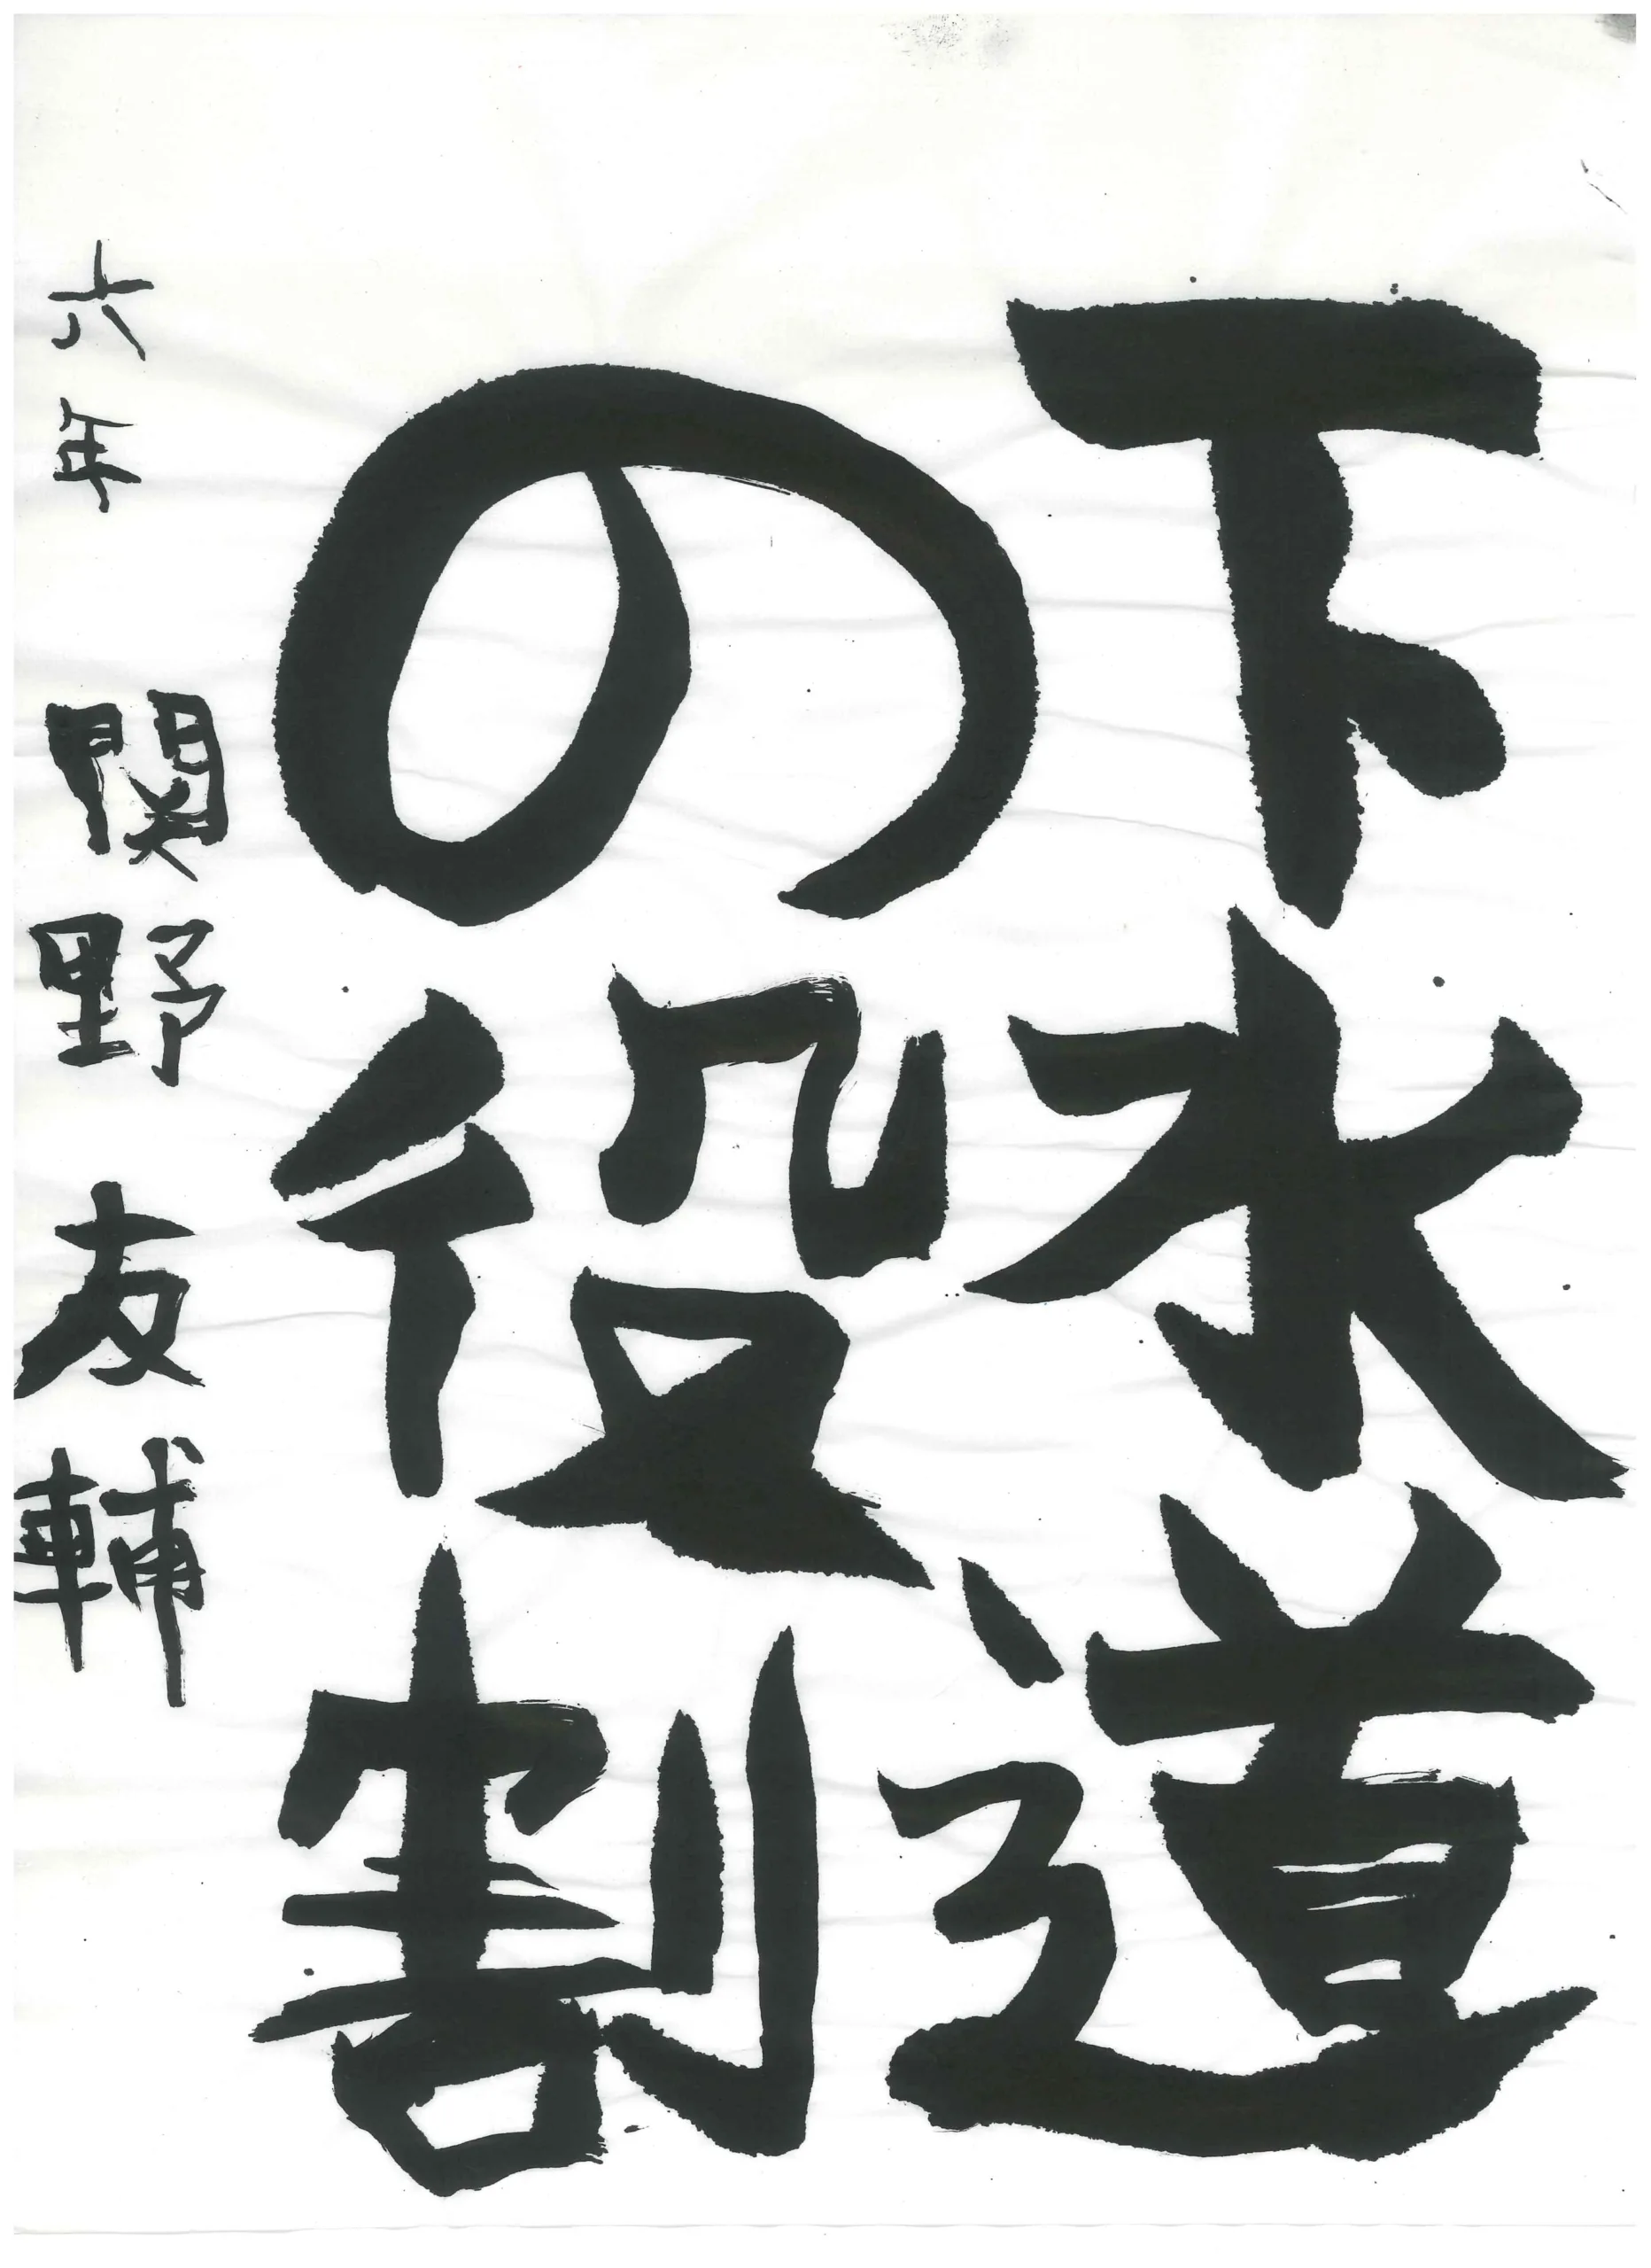 下水道
の役割
六年 関野友輔